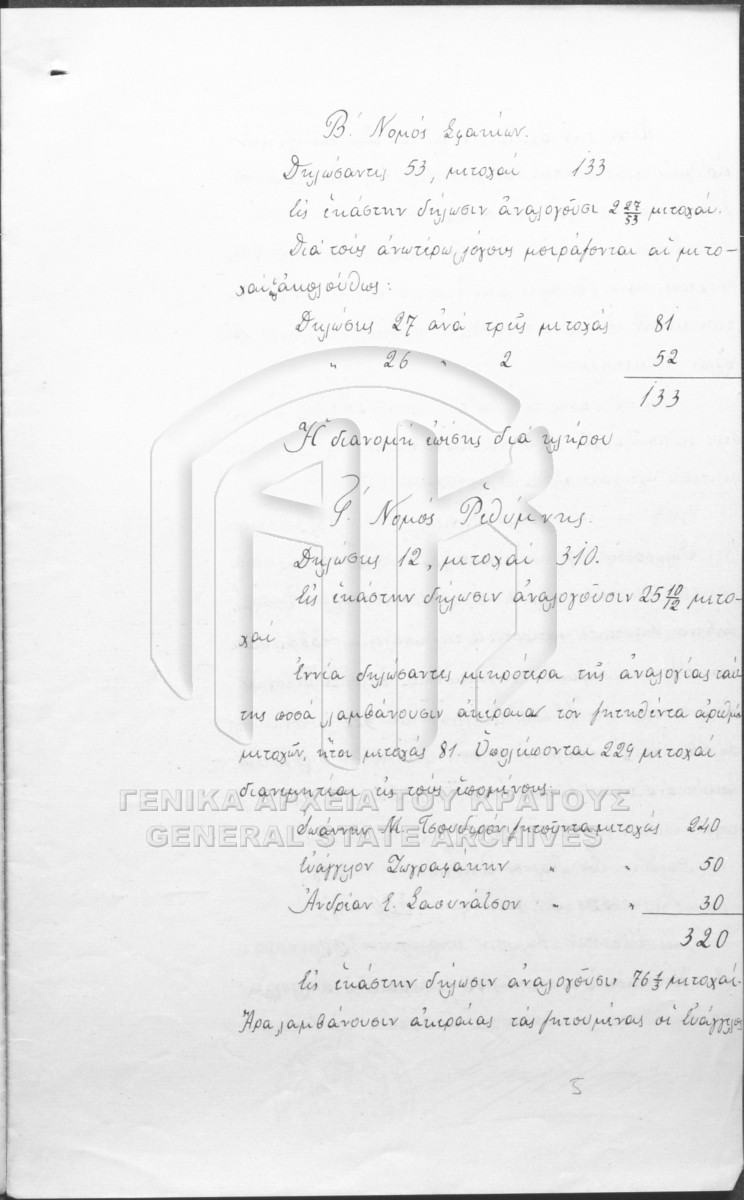 Β΄. Νομός Σφακίων.
Δηλώσαντες 53, μετοχαί 133
Εἰς ἑκάστην δήλωσιν ἀναλογοῦσι 2 27/53 μετοχαί.
Διά τούς ἀνωτέρω λόγους μοιράζονται αἱ μετο-
χαί ὡς ἀκολούθως:
Δηλώσεις 27 ἀνά τρεῖς μετοχάς 81
„ 26 „ 2 52
133
Ἡ διανομή ἐπίσης διά κλήρου
Γ΄. Νομός Ρεθύμνης.
Δηλώσεις 12, μετοχαί 310.
Εἰς ἑκάστην δήλωσιν ἀναλογοῦσιν 25 10/12 μετο-
χαί
Ἐννέα δηλώσαντες μικρότερα τῆς ἀναλογίας ταύ-
της ποσά λαμβάνουσιν ἀκέραια τόν ζητηθέντα ἀριθμόν
μετοχῶν, ἤτοι μετοχάς 81. Ὑπολείπονται 229 μετοχαί
διανεμητέαι εἰς τούς ἑπομένους:
Ἰωάννην Μ. Τσουδερόν ζητοῦντα μετοχάς 240
Εὐάγγελον Ζωγραφάκην „ „ 50
Ἀνδρέαν Ε. „ „ 30
320
Εἰς ἑκάστην δήλωσιν ἀναλογοῦσι 76 1/3 μετοχαί.
Ἄρα λαμβάνουσιν ἀκεραίας τάς ζητουμένας οἱ Εὐάγγελος
5
ΓΕΝΙΚΑ ΑΡΧΕΙΑ ΤΟΥ ΚΡΑΤΟΥΣ
GENERAL STATE ARCHIVES